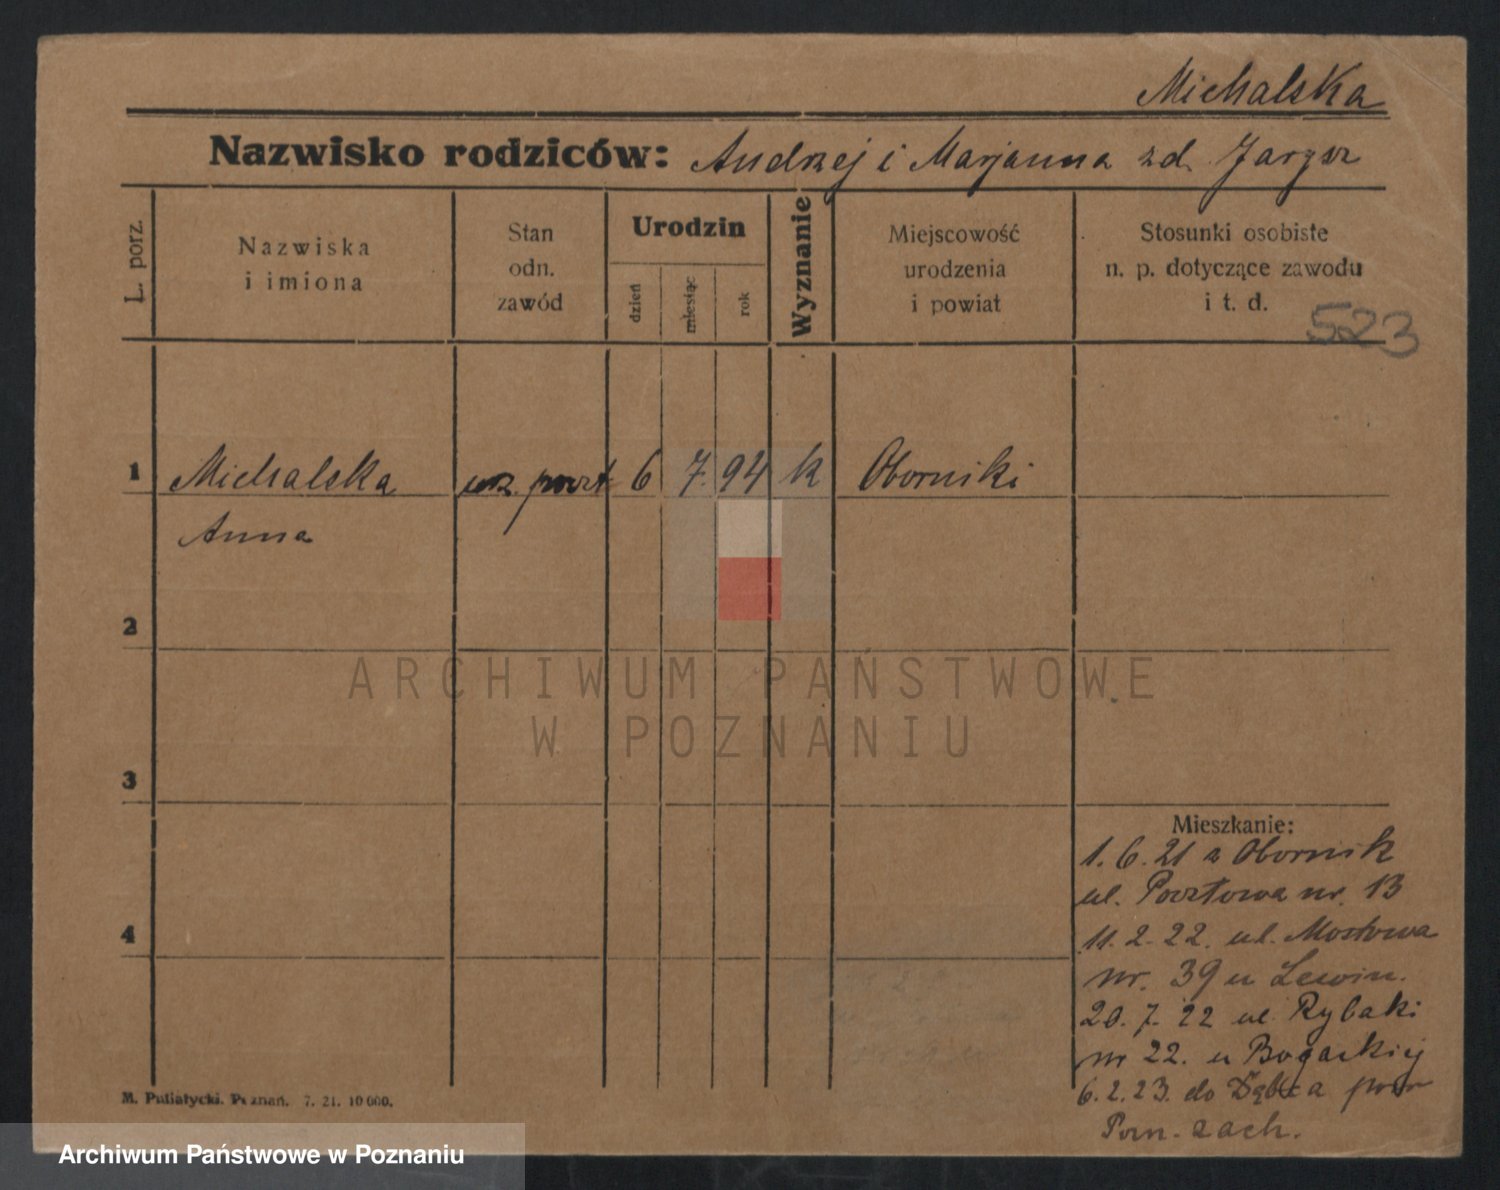 Michalska
Nazwisko rodziców: Andrzej i Marjanna zd. Jarysz
L. porz.
Nazwiska
i imiona
Stan
odn.
zawód
Urodzin
dzień
miesiąc
rok
Wyznanie
Miejscowość
urodzenia
i powiat
Stosunki osobiste
n. p. dotyczące zawodu
i t. d.
523
1 Michalska urz. poczt 6 7. 94 k Oborniki
Anna
2
ARCHIWUM PAŃSTWOWE
W POZNANIU
3
Mieszkanie:
1. 6. 21 z Obornik
ul. Pocztowa nr. 13
4
11. 2. 22. ul. Mostowa
nr. 39 u Lewin.
20. 7. 22 ul. Rybaki
nr 22. u Bogackiej
6. 2. 23. do Dębca pow
Pozn. zach.
M. Putiatycki. Poznań. 7. 21. 10 000.
Archiwum Państwowe w Poznaniu